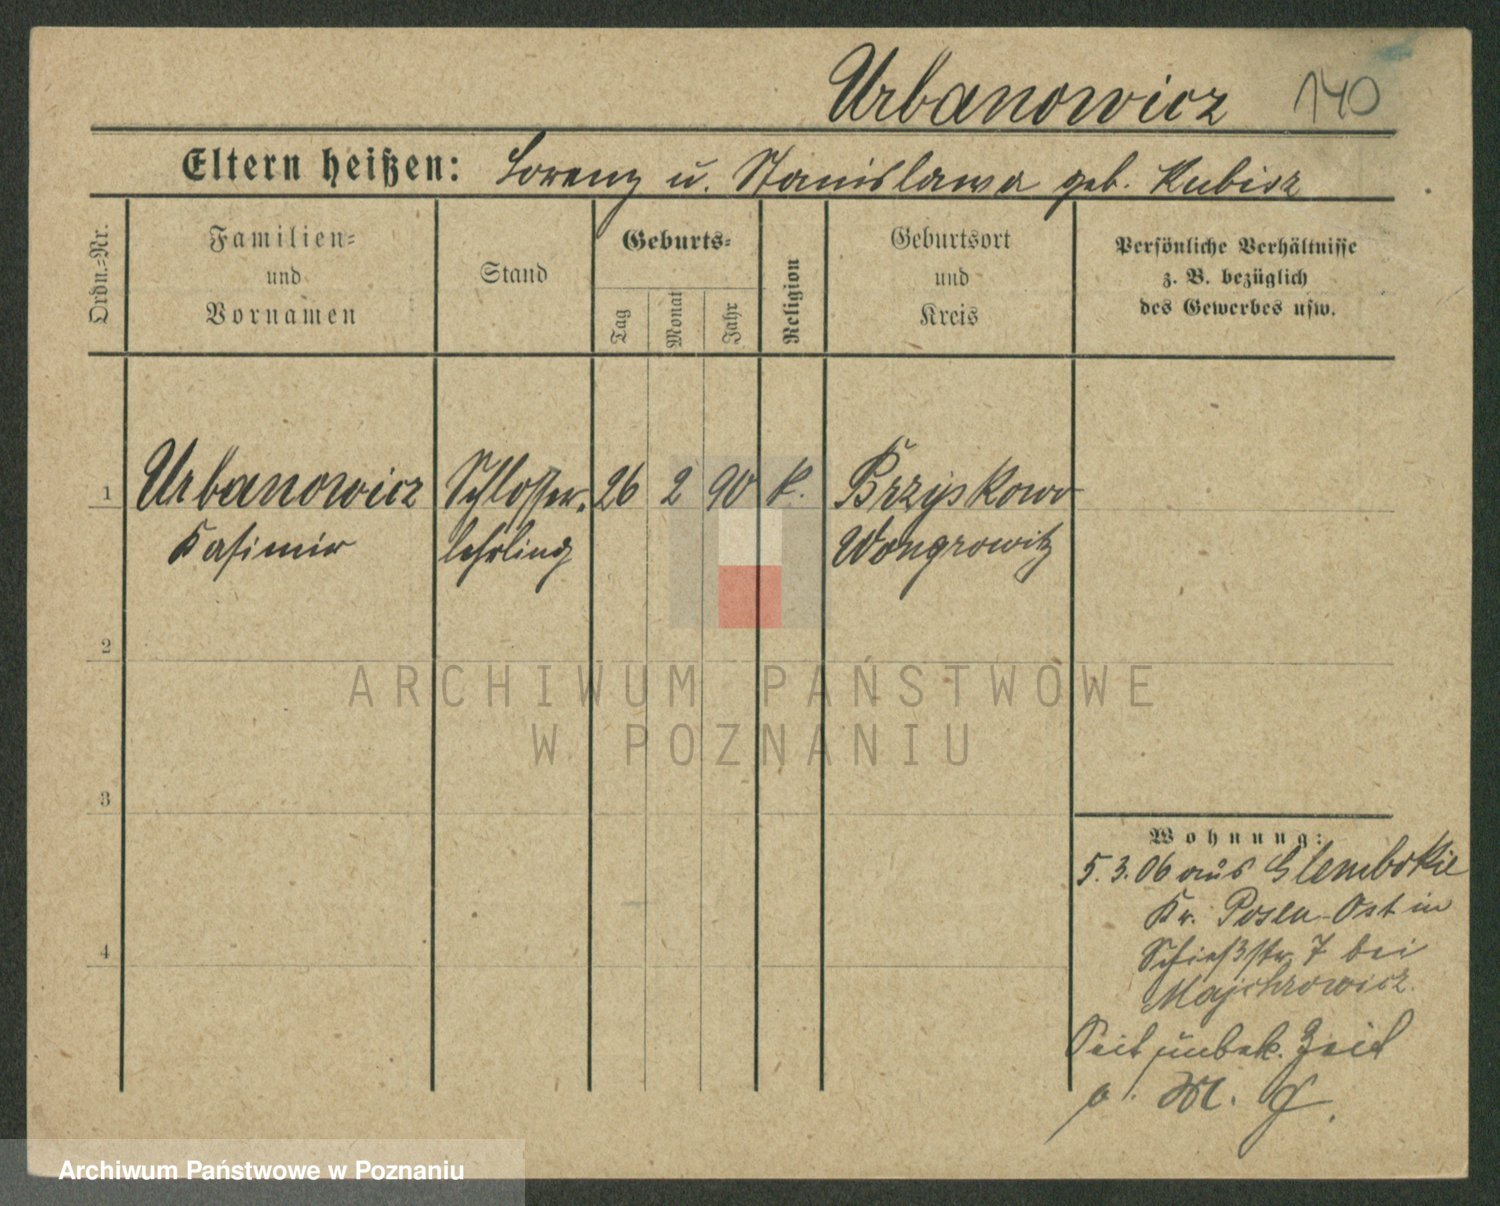 Urbanowicz 140
Eltern heißen: Lorenz u. Stanislawa geb. Kubisz
Ordn.-Nr.
Familien-
und
Vornamen
Stand
Geburts-
Tag
Monat
Jahr
Religion
Geburtsort
und
Kreis
Persönliche Verhältnisse
z. B. bezüglich
des Gewerbes usw.
1 Urbanowicz Schlosser- 26 2 90 k. Brzyskowo
Kasimir lehrling Wongrowitz
2
ARCHIWUM PAŃSTWOWE
W POZNANIU
3
Wohnung:
5. 3. 06 aus Glembokie
Kr. Posen-Ost in
Schießstr. 7 bei
Majchrowicz.
Seit unbek. Zeit
o.
4
Archiwum Państwowe w Poznaniu